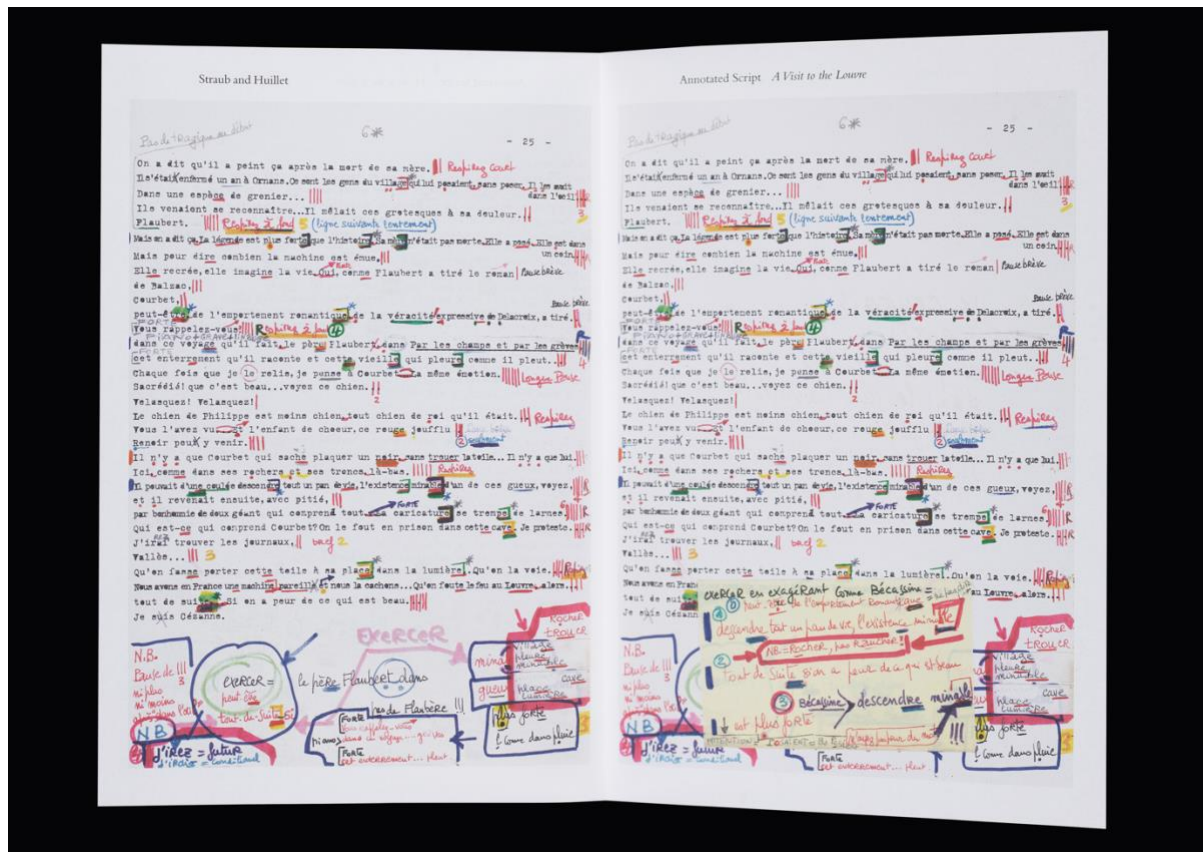 Straub and Huillet
Pas de tragique au début
6*
- 25 -
On a dit qu'il a peint ça après la mort de sa mère. Respirez court
Il s'était enfermé un an à Ornans. Ce sont les gens du village qui lui posaient, sans poser. Il les avait
dans l'oeil
3
Dans une espèce de grenier...
Ils venaient se reconnaître...Il mêlait ces grotesques à sa douleur.
Flaubert. Respirez à fond 5 (ligne suivante lentement)
Mais on a dit ça. La légende est plus forte que l'histoire. Sa mère n'était pas morte. Elle a posé. Elle est dans
un coin.
Mais pour dire combien la machine est émue,
Elle recrée, elle imagine la vie. Oui, comme Flaubert a tiré le roman Pause brève
de Balzac,
Courbet,
pause brève
peut-être de l'emportement romantique de la véracité expressive de Delacroix, a tiré.
FORTE
Vous rappelez-vous! Respirez à fond 4
PIANO + GRAVE
dans ce voyage qu'il fait, le père Flaubert, dans Par les champs et par les grèves
FORTE
cet enterrement qu'il raconte et cette vieille qui pleure comme il pleut...
4
Chaque fois que je le relis, je pense à Courbet. La même émotion. Longue Pause
Sacrédié! que c'est beau...voyez ce chien.
2
Velasquez! Velasquez!
Le chien de Philippe est moins chien, tout chien de roi qu'il était. Respirez
Vous l'avez vu... et l'enfant de choeur, ce rouge joufflu
2
Renoir peut y venir.
Il n'y a que Courbet qui sache plaquer un noir, sans trouer la toile... Il n'y a que lui.
Ici, comme dans ses rochers et ses troncs, là-bas. Respirez
Il pouvait d'une coulée descendre tout un pan de vie, l'existence minable d'un de ces gueux, voyez,
et il revenait ensuite, avec pitié,
FORTE
par bonhomie de doux géant qui comprend tout... la caricature se trempe de larmes.
Qui est-ce qui comprend Courbet? On le fout en prison dans cette cave. Je proteste. R
J'irai trouver les journaux, bref 2
Vallès... 3
Qu'on fasse porter cette toile à sa place, dans la lumière. Qu'on la voie.
Nous avons en France une machine pareille et nous la cachons... Qu'on foute le feu au Louvre, alors...
tout de suite. Si on a peur de ce qui est beau.
Je suis Cézanne.
N.B.
Pause de
3
ni plus
ni moins
EXERCER =
peut-être
tout-de-suite si
EXERCER
le père Flaubert dans
pas de Flaubère !!!
piano
Forte
Vous rappelez-vous
dans ce voyage... grèves
Forte
cet enterrement... pleut
NB
J'IREZ = futur
J'irais = conditionnel
mina
gueux
Rocher
trouer
village
pleure
minable
place
lumière
cave
plus forte
Comme dans pluie
3
Annotated Script A Visit to the Louvre
Pas de tragique au début
6*
- 25 -
On a dit qu'il a peint ça après la mort de sa mère. Respirez court
Il s'était enfermé un an à Ornans. Ce sont les gens du village qui lui posaient, sans poser. Il les avait
dans l'oeil
3
Dans une espèce de grenier...
Ils venaient se reconnaître...Il mêlait ces grotesques à sa douleur.
Flaubert. Respirez à fond 5 (ligne suivante lentement)
Mais on a dit ça. La légende est plus forte que l'histoire. Sa mère n'était pas morte. Elle a posé. Elle est dans
un coin.
Mais pour dire combien la machine est émue,
Elle recrée, elle imagine la vie. Oui, comme Flaubert a tiré le roman Pause brève
de Balzac,
Courbet,
pause brève
peut-être de l'emportement romantique de la véracité expressive de Delacroix, a tiré.
FORTE
Vous rappelez-vous! Respirez à fond 4
PIANO + GRAVE
dans ce voyage qu'il fait, le père Flaubert, dans Par les champs et par les grèves
FORTE
cet enterrement qu'il raconte et cette vieille qui pleure comme il pleut...
4
Chaque fois que je le relis, je pense à Courbet. La même émotion. Longue Pause
Sacrédié! que c'est beau...voyez ce chien.
2
Velasquez! Velasquez!
Le chien de Philippe est moins chien, tout chien de roi qu'il était. Respirez
Vous l'avez vu... et l'enfant de choeur, ce rouge joufflu
2
Renoir peut y venir.
Il n'y a que Courbet qui sache plaquer un noir, sans trouer la toile... Il n'y a que lui.
Ici, comme dans ses rochers et ses troncs, là-bas. Respirez
Il pouvait d'une coulée descendre tout un pan de vie, l'existence minable d'un de ces gueux, voyez,
et il revenait ensuite, avec pitié,
FORTE
par bonhomie de doux géant qui comprend tout... la caricature se trempe de larmes.
Qui est-ce qui comprend Courbet? On le fout en prison dans cette cave. Je proteste. R
J'irai trouver les journaux, bref 2
Vallès... 3
Qu'on fasse porter cette toile à sa place, dans la lumière. Qu'on la voie.
Nous avons en Fran
au Louvre, alors...
tout de suit
Je suis Cézanne.
EXERCER en exagérant comme Bécassine =
1 peut-être de l'emportement Romantique =
descendre tout un pan de vie, l'existence minable
2 NB = ROCHER, pas RAUCHER!
Tout de suite si on a peur de ce qui est beau
3 Bécassine descendre minable
est plus forte
!!!
N.B.
Pause de
3
ni plus
ni moins
NB
J'IREZ = future
J'irais = conditionnel
Forte
cet enterrement... pleut
Rocher
trouer
village
pleure
minable
place
lumière
cave
plus forte
Comme dans pluie
3